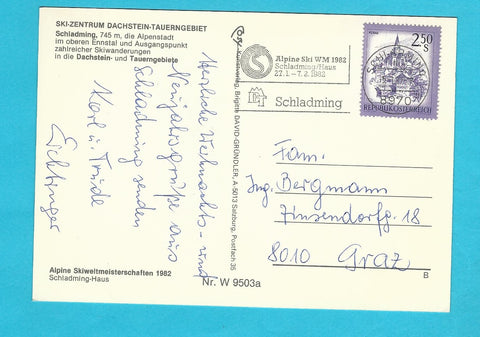 SKI-ZENTRUM DACHSTEIN-TAUERNGEBIET
Schladming, 745 m, die Alpenstadt
im oberen Ennstal und Ausgangspunkt
zahlreicher Skiwanderungen
in die Dachstein- und Tauerngebiete
Herzliche Weihnachts- und
Neujahrsgrüße aus
Schladming senden
Karl u. Trude
Eichtinger
Alpine Skiweltmeisterschaften 1982
Schladming-Haus
Nr. W 9503a
Brigitte DAVID-GRÜNDLER, A-5013 Salzburg, Postfach 35
Alpine Ski WM 1982
Schladming/Haus
27.1.-7.2.1982
Schladming
2.50
S
8970
REPUBLIK ÖSTERREICH
Fam.
Ing. Bergmann
Zinsendorfg. 18
8010 Graz
B